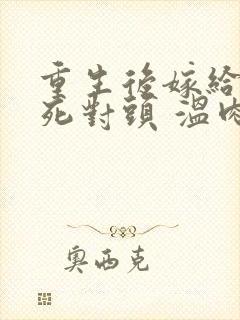 重生後嫁給
死對頭 溫肉
奧西克